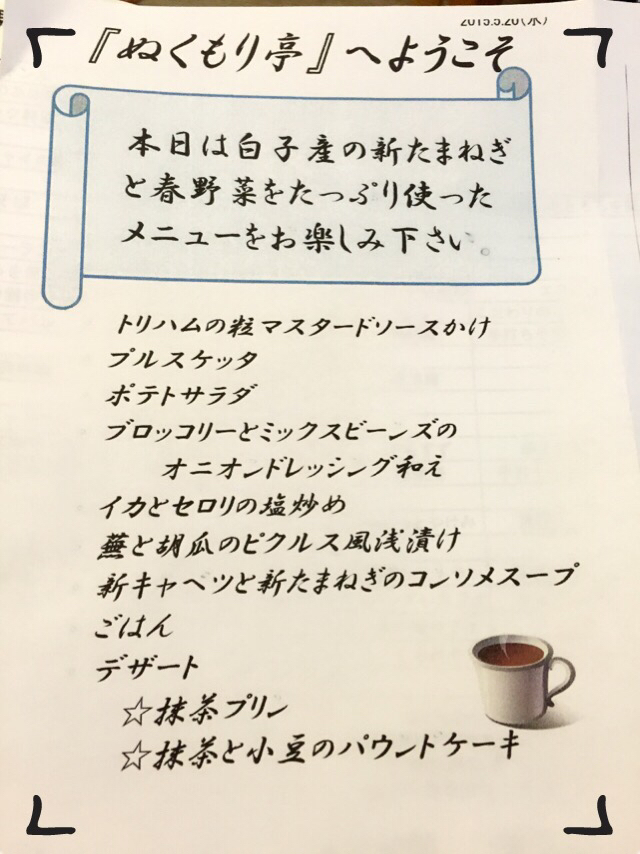 2015.5.20(水)
『ぬくもり亭』へようこそ
本日は白子産の新たまねぎ
と春野菜をたっぷり使った
メニューをお楽しみ下さい。
トリハムの粒マスタードソースかけ
ブルスケッタ
ポテトサラダ
ブロッコリーとミックスビーンズの
オニオンドレッシング和え
イカとセロリの塩炒め
蕪と胡瓜のピクルス風浅漬け
新キャベツと新たまねぎのコンソメスープ
ごはん
デザート
☆抹茶プリン
☆抹茶と小豆のパウンドケーキ